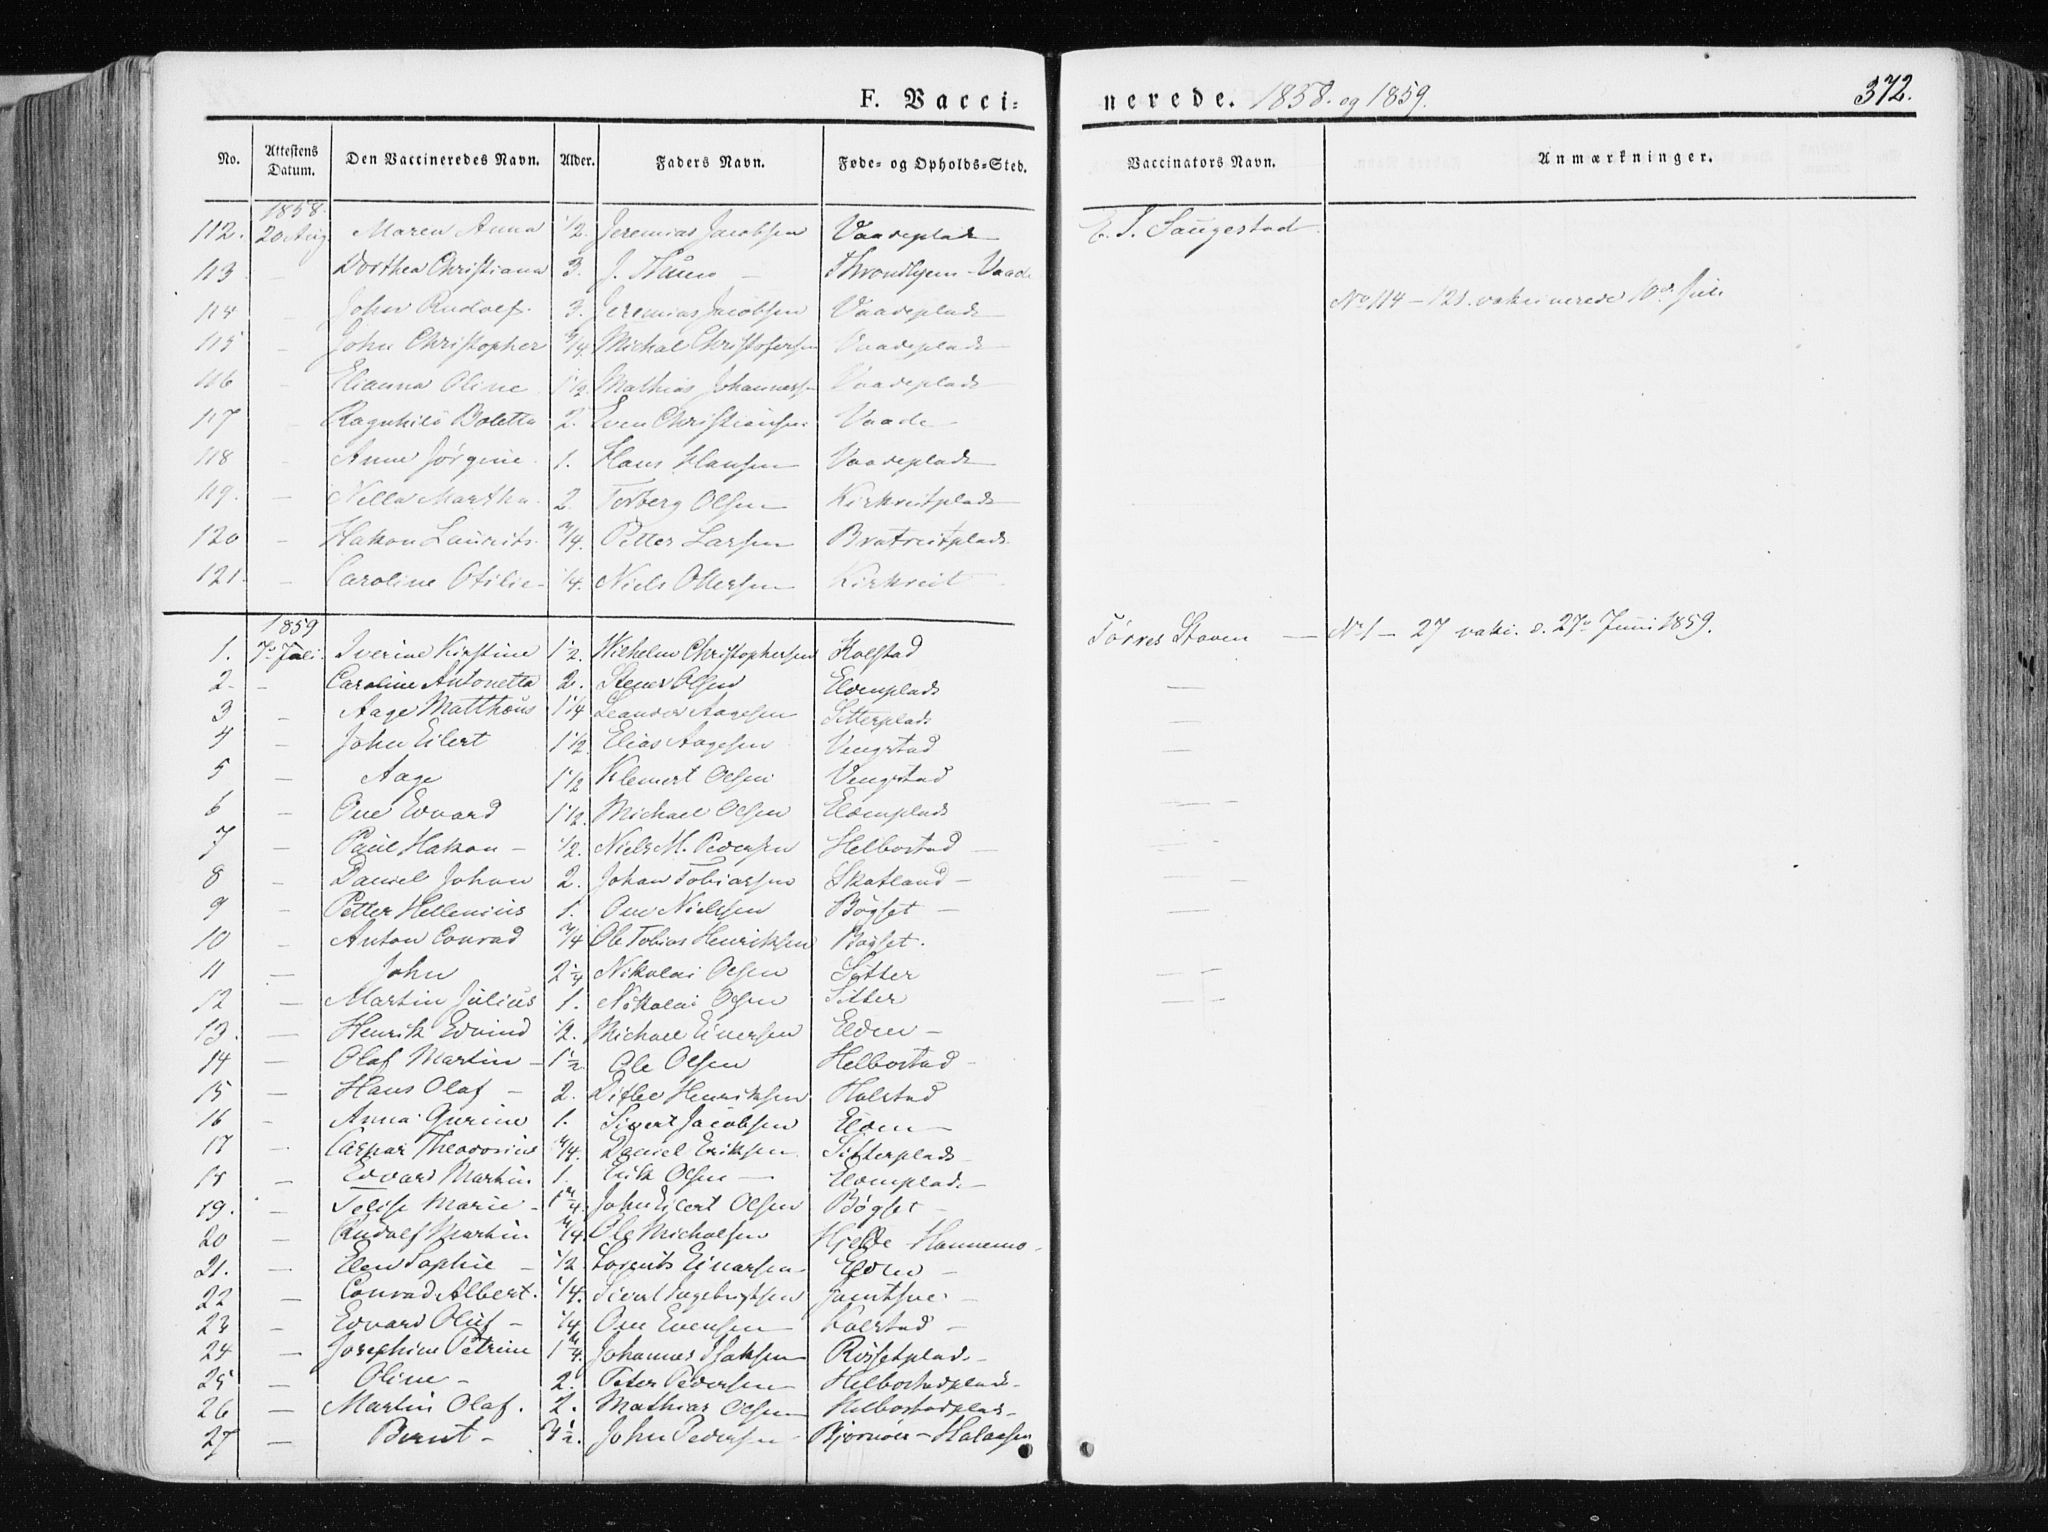 F. Vacci=
nerede. 1858. og 1859.
372.
No. Attestens Datum. Den Vaccineredes Navn. Alder. Faders Navn. Føde= og Opholds=Sted. Vaccinators Navn. Anmærkninger.
1858.
112. 20 Aug. Maren Anna 1/2 Jeremias Jacobsen Vaadeplads E. I. Saugestad
113 - Dorthea Christiana 3. J. - Throndhjem - Vaade
114 - John Rudolf. 3. Jeremias Jacobsen Vaadeplads No 114 - 121. vakcinerede 10de Juli
115 - John Christopher 3/4 Michal Christofersen Vaadeplads
116 - Elianna Oline 1 1/2 Mathias Johannessen Vaadeplads
117 - Ragnhild Boletta 2. Even Christiansen Vaade
118 - Anne Jørgine. 1. Hans Hansen Vaadeplads
119. - Nella Martha. 2. Torberg Olsen Kirkreitplads
120 - Hakon Laurits. 3/4. Petter Larsen Bratreitplads
121. - Caroline Otilie - 1/4. Niels Ottersen Kirkreit
1859
1. 7de Juli. Iverine Kirstine 1 1/2. Wilhelm Christophersen Kolstad Tørres Staven - No 1 - 27 vakc. d. 27de Juni 1859.
2. - Caroline Antonetta 2. Olsen Eldenplads
3 - Aage Matthæus 1 1/4 Leander Aagesen Sitterplads
4 - John Eilert 1 1/2. Elias Aagesen Vengstad
5 - Aage 1 1/2 Klemert Olsen Vengstad
6 - Ove Edvard 1 1/2. Michael Olsen Eldenplads
7 - Paul Hakon - 1/2. Niels M. Pedersen Helbostad
8 - Daniel Johan 2. Johan Tobiassen Skatland -
9 - Petter Hellenius 1. Ove Nielssen Bøgset -
10 - Anton Conrad 3/4 Ole Tobias Henriksen Bøgset.
11 - John 2 1/4 Nikolai Olsen Sitter
12 - Martin Julius 1. Nikolai Olsen Sitter
13. - Henrik Edvind 1/2. Michael Einersen Elden -
14 - Olaf Martin - 1 1/2 Ole Olsen Helbostad -
15 - Hans Olaf - 2. Ditlev Henriksen Halstad
16 - Anna Gurine 1. Sivert Jacobsen Elden -
17 - Caspar Theodosius 3/4. Daniel Eriksen Sitterplads
18 - Edvard Martin 1. Erik Olsen - Eldenplads -
19. - Felise Marie - 1 3/4. John Eilert Olsen Bøgset -
20 - Rudolf Martin 3/4 Ole Micholsen Hjelde - Hannemo.
21. - Elen Sophie - 1/2 Lorents Einarsen - Elden -
22 - Conrad Albert. 1/4. Sivert Ingebrigtsen -
23 - Edvard Oluf - 1/4 Ove Evensen Kolstad -
24 - Josephine Petrine 1 3/4. Johannes Isaksen Røssetplads -
25 - Oline - 2. Peter Pedersen Helbostadplads -
26 - Martin Olaf. 2. Mathias Olsen Helbostadplads -
27 - Bernt - 3 1/2. John Pedersen - Bjørnør - Halaasen